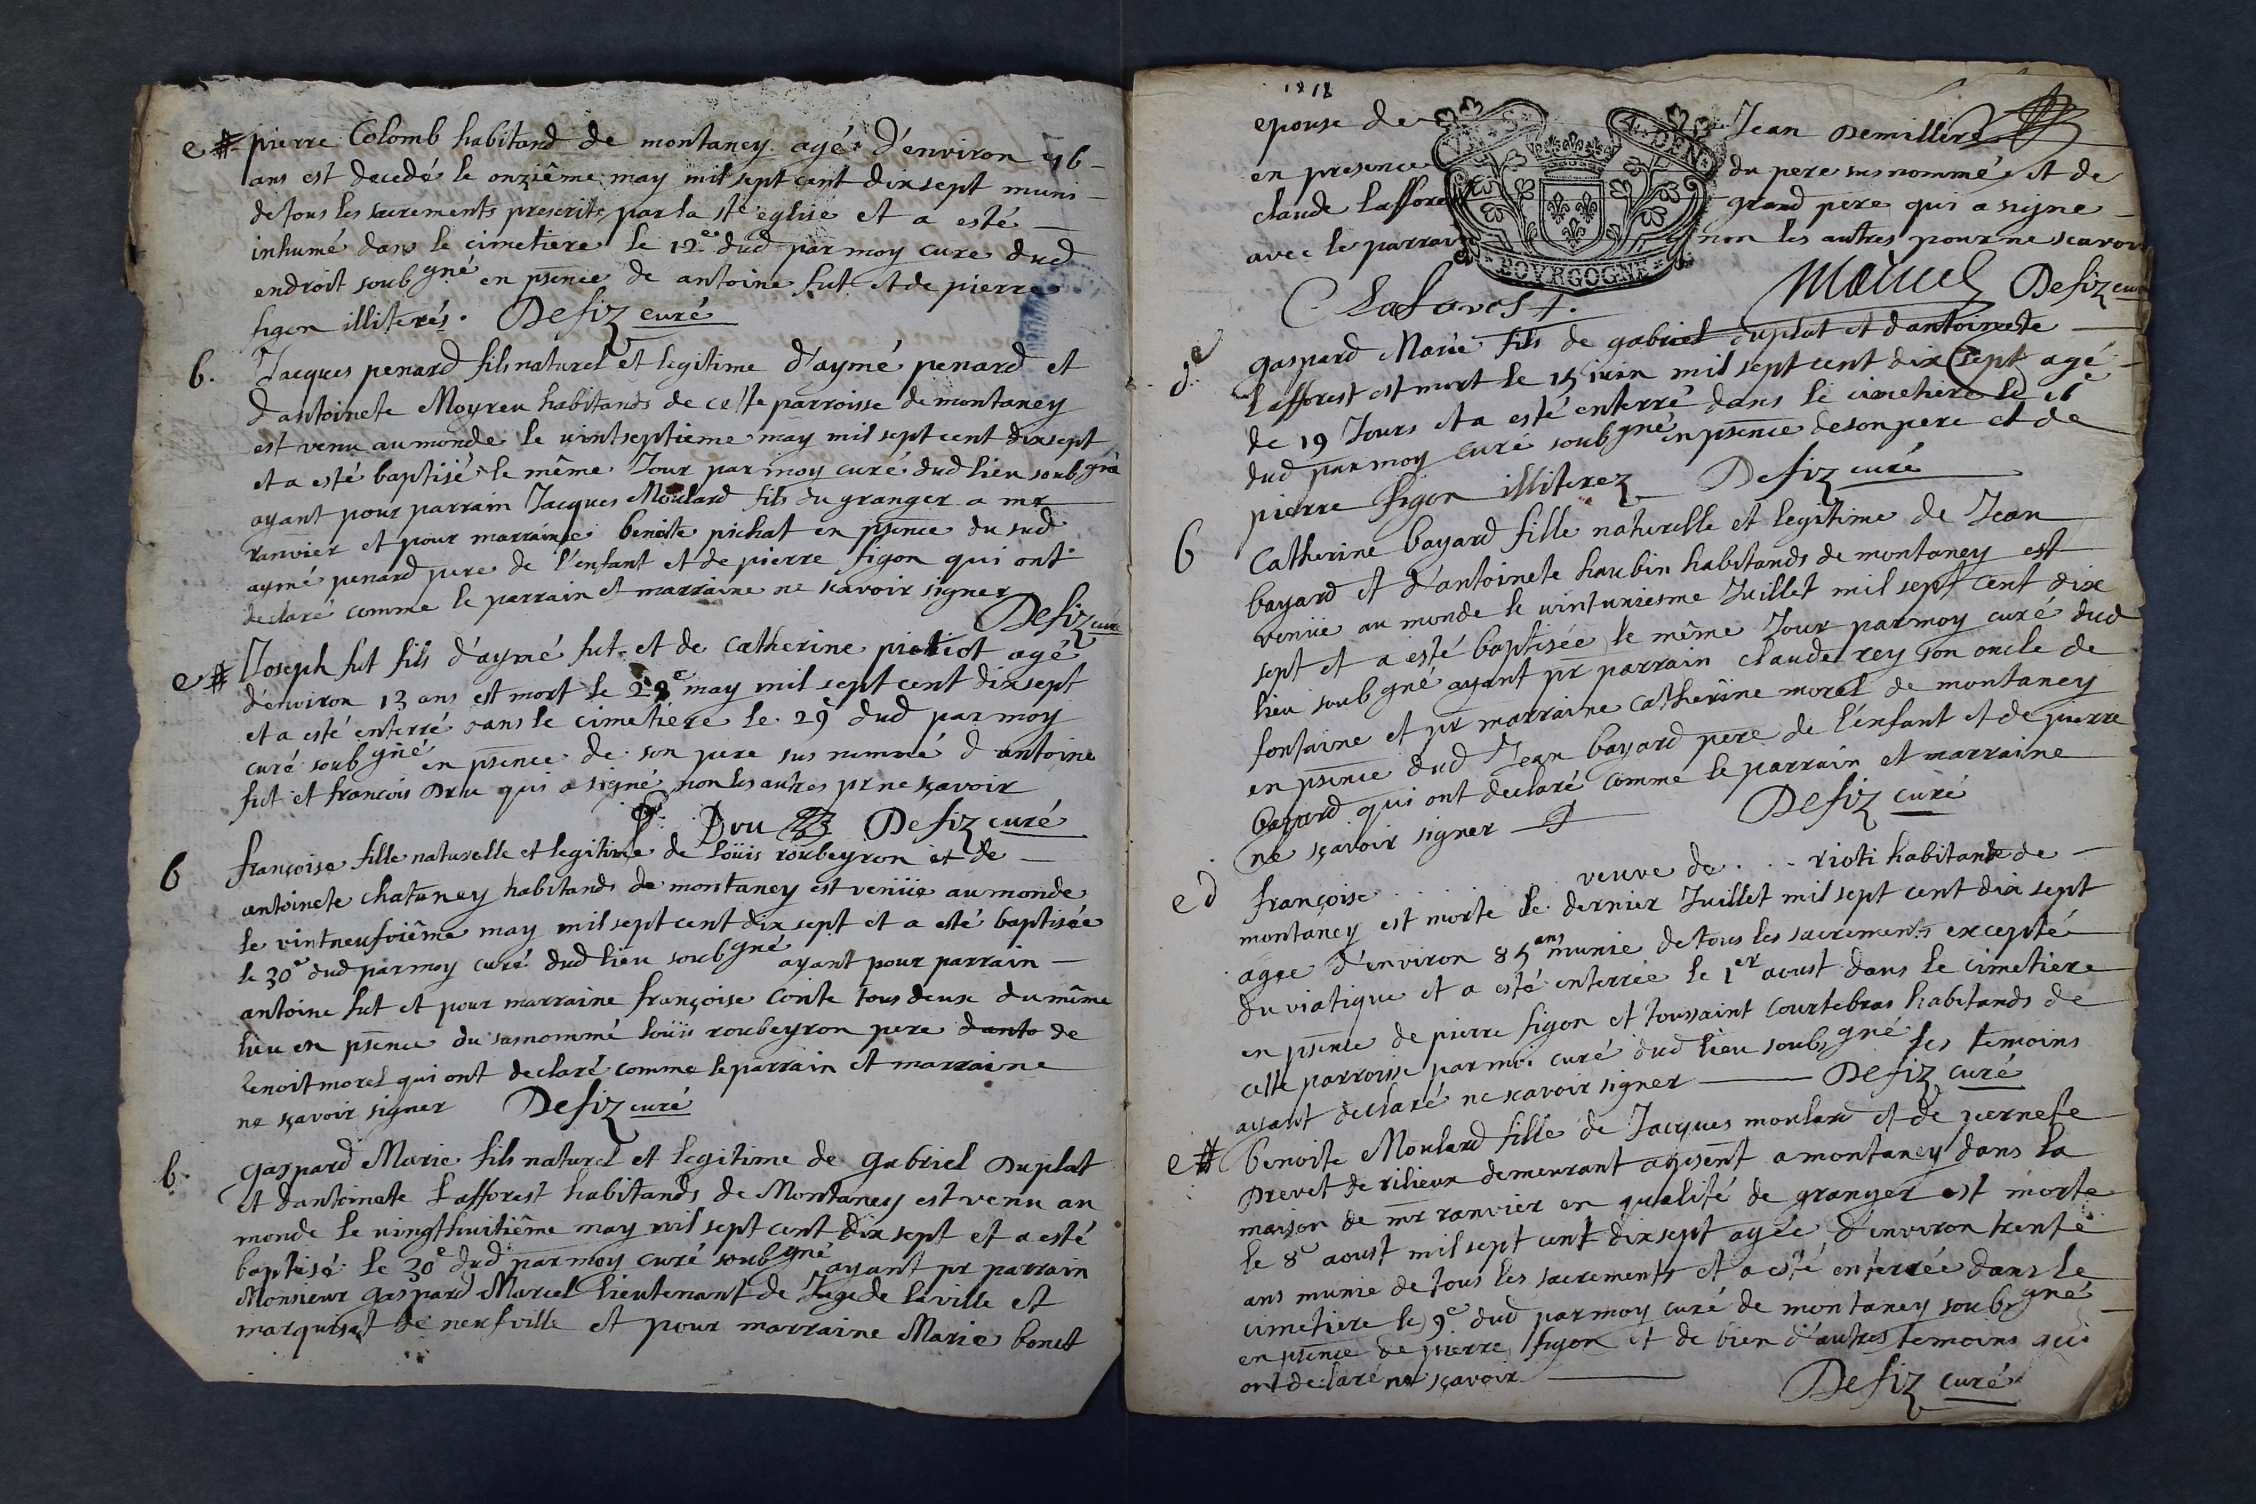 e # pierre Colomb habitand de montaney agé d'environ 46
ans est decedé le onziême may mil sept cent dix sept muni
de tous les sacrements prescrits par la ste eglise et a esté
inhumé dans le cimetiere le 12e dud par moy cure dud
endroit soubgné en psence de antoine fut et de pierre
figon illiterés. Defiz curé
b. Jacques penard fils naturel et legitime d'aymé penard et
d'antoinete Moyreu habitands de cette parroisse de montaney
est venu au monde le vintseptieme may mil sept cent dix sept
et a esté baptisé le même Jour par moy curé dud lieu soubgné
ayant pour parrain Jacques Moulard fils du granger a mr
ranvier et pour marraine benoite pichat en psence du sud
aymé penard pere de l'enfant et de pierre figon qui ont
declaré comme le parrain et marraine ne scavoir signer
Defiz curé
e # Joseph fut fils d'aymé fut et de catherine agé
d'environ 13 ans est mort le 28e may mil sept cent dix sept
et a esté enterré dans le cimetiere le 29e dud par moy
curé soubgné en psence de son pere sus nommé d antoine
fut et francois Dru qui a signé non les autres pr ne sçavoir
Dru Defiz curé
b françoise fille naturelle et legitime de loüis roubeyron et de
antoinete chataney habitands de montaney est veniie au monde
le vintneufviême may mil sept cent dix sept et a esté baptisée
le 30e dud par moy curé dud lieu soubgné ayant pour parrain
antoine fut et pour marraine françoise conte tous deux du même
lieu en psence du susnommé loüis roubeyron pere danto de
benoit morel qui ont declaré comme le parrain et marraine
ne sçavoir signer Defiz curé
b. gaspard Marie fils naturel et legitime de gabriel Duplat
et dantoinete Lafforest habitands de Montaney est venu au
monde le vingthuitiême may mil sept cent dix sept et a esté
baptisé le 30e dud par moy curé soubgné ayant pr parrain
Monsieur gaspard Marcel lieutenant de Juge de laville et
marquisat de neufville et pour marraine Marie bonet
epouse de Jean Demillere
en presence du pere sus nommé et de
claude Lafforest grand pere qui a signe
avec le parrain non les autres pour ne scavoir
BOVRGOGNE
C Laforest. Defiz curé
d. e gaspard Marie fils de gabriel duplat et dantoinete
Lafforest est mort le 15 iuin mil sept cent dix sept agé
de 19 Jours et a esté enterré dans le cimetiere le 16e
dud par moy curé soubgné en psence de son pere et de
pierre figon illiterez Defiz curé
b Catherine bayard fille naturelle et legitime de Jean
bayard et d'antoinete haubin habitands de montaney est
veniie au monde le vintuniesme Juillet mil sept cent dix
sept et a esté baptisée le même Jour par moy curé dud
lieu soubgné ayant pr parrain claude rey son oncle de
fontaine et pr marraine catherine morel de montaney
en psence dud Jean bayard pere de l'enfant et de pierre
bayard qui ont declaré comme le parrain et marraine
ne sçavoir signer Defiz curé
e d françoise . . . . veuve de . . . rioti habitante de
montaney est morte le dernier Juillet mil sept cent dix sept
agee d'environ 85 ans munie de tous les sacrements excepté
du viatique et a esté enterrée le 1er aoust dans le cimetiere
en psence de pierre figon et toussaint courtebras habitands de
cette parroisse par moi curé dud lieu soubsgné les temoins
ayant declaré ne scavoir signer Defiz curé
e # benoite Moulard fille de Jacques moulard et de pernete
Drevet de rilieux demeurant apsent a montaney dans la
maison de mr ranvier en qualité de granger est morte
le 8e aoust mil sept cent dix sept agée d'environ trente
ans munie de tous les sacrements et a esté enterrée dans le
cimetiere le 9e dud par moy curé de montaney soubsgné
en psence de pierre figon et de bien d'autres temoins qui
ont declaré ne sçavoir Defiz curé